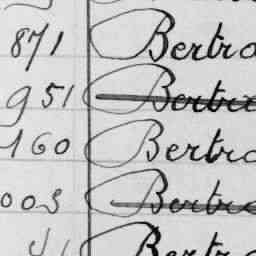 871 Bertra
951 Bertra
160 Bertra
003 Bertra
Bertra